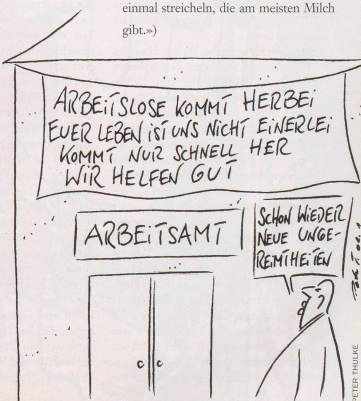 einmal streicheln, die am meisten Milch
gibt.»)
ARBEITSLOSE KOMMT HERBEI
EUER LEBEN IST UNS NICHT EINERLEI
KOMMT NUR SCHNELL HER
WIR HELFEN GUT
ARBEITSAMT
SCHON WIEDER
NEUE UNGE-
REIMTHEITEN
PETER THULKE